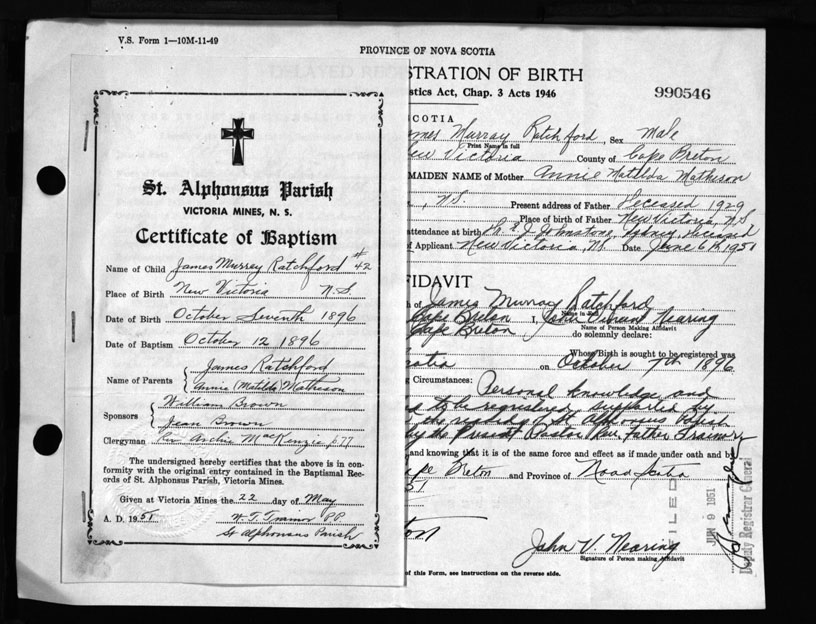 V.S. Form 1—10M-11-49
PROVINCE OF NOVA SCOTIA
STRATION OF BIRTH
stics Act, Chap. 3 Acts 1946
990546
St. Alphonsus Parish
VICTORIA MINES, N. S.
Certificate of Baptism
Name of Child James Murray Ratchford #42
Place of Birth New Victoria N.S
Date of Birth October Seventh 1896
Date of Baptism October 12 1896
Name of Parents James Ratchford
Annie (Matilda) Matheson
Sponsors William Brown
Jean Brown
Clergyman Rev Archie MacKenzie P.77
The undersigned hereby certifies that the above is in con-
formity with the original entry contained in the Baptismal Rec-
ords of St. Alphonsus Parish, Victoria Mines.
Given at Victoria Mines the 22 day of May
A. D. 1951 W. T. Trainor PP
St Alphonsus Parish
SCOTIA
ames Murray Ratchford, Sex Male
Print Name in full
New Victoria County of Cape Breton
MAIDEN NAME of Mother Annie Matilda Matheson
, N.S. Present address of Father Deceased 1929
Place of birth of Father New Victoria, N.S
attendance at birth Johnstone, Sydney, Deceased
of Applicant New Victoria, N.S. Date June 6th 1951
FIDAVIT
h of James Murray Ratchford
Name in full
Cape Breton I, John Vibert Nearing
Name of Person Making Affidavit
Cape Breton do solemnly declare:
Whose Birth is sought to be registered was
cotia on October 7th 1896
Circumstances: Personal knowledge and
d to be registered, supported by
St. Alphonsus Parish
by the Present Pastor Rev. Father Trainor
and knowing that it is of the same force and effect as if made under oath and by
ape Breton and Province of Nova Scotia
51
ton
John V. Nearing
Signature of Person making Affidavit
of this Form, see instructions on the reverse side.
FILED
JUN 9 1951
Deputy Registrar General